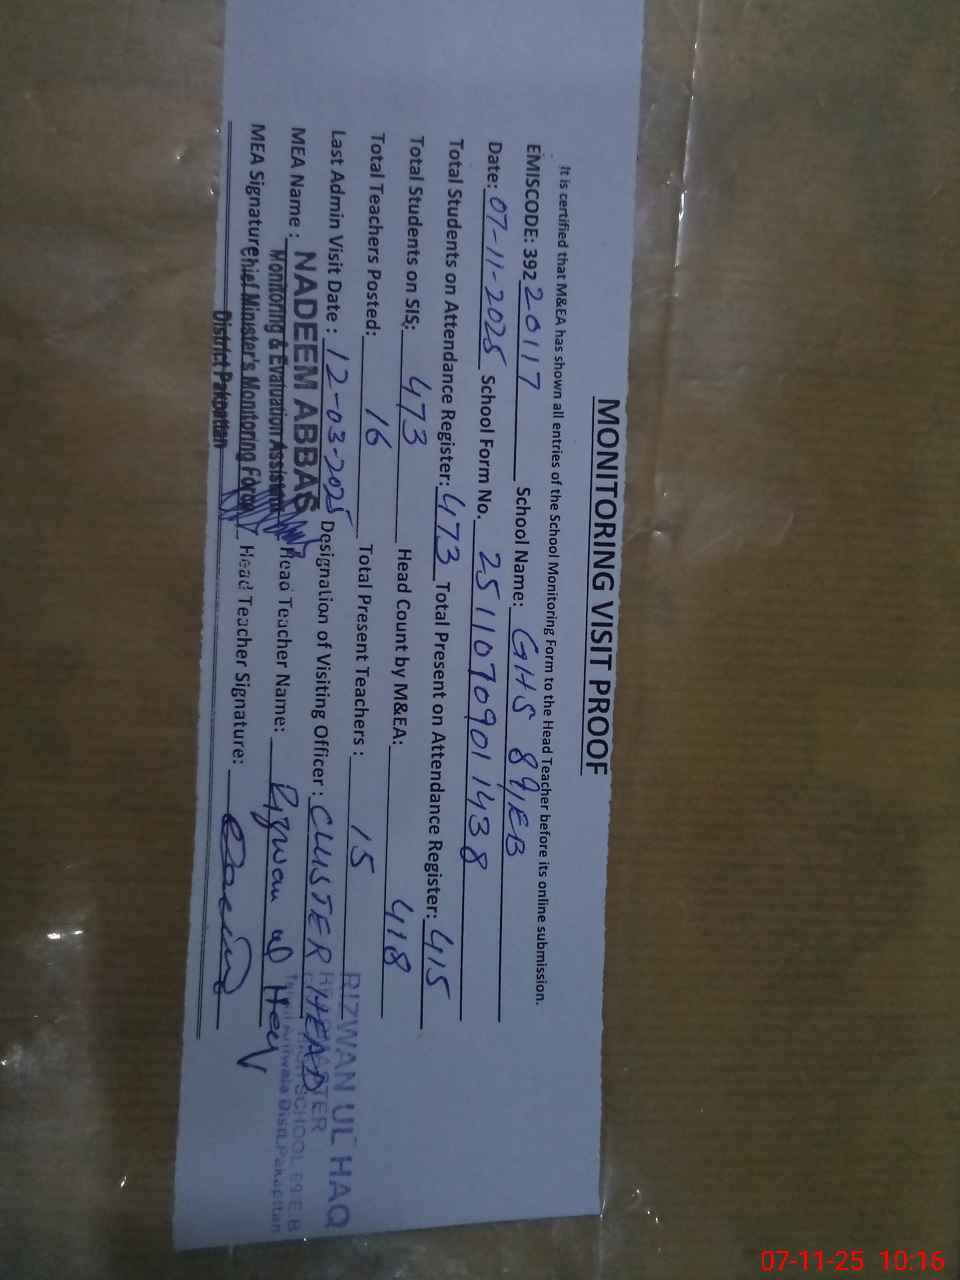 MONITORING VISIT PROOF
It is certified that M&EA has shown all entries of the School Monitoring Form to the Head Teacher before its online submission.
EMISCODE: 39220117 School Name: GHS 89/EB
Date: 07-11-2025 School Form No. 2511070901438
Total Students on Attendance Register: 473 Total Present on Attendance Register: 415
Total Students on SIS: 473 Head Count by M&EA: 418
Total Teachers Posted: 16 Total Present Teachers : 15
Last Admin Visit Date : 12-03-2025 Designation of Visiting Officer : CLUSTER HEAD
MEA Name : NADEEM ABBAS Head Teacher Name: Rizwan ul Haq
Monitoring & Evaluation Assistant
MEA Signature Chief Minister's Monitoring Force Head Teacher Signature:
District Pakpattan
RIZWAN UL HAQ
SCHOOL 89 E.B
Arifwala Distt. Pakapttan
07-11-25 10:16